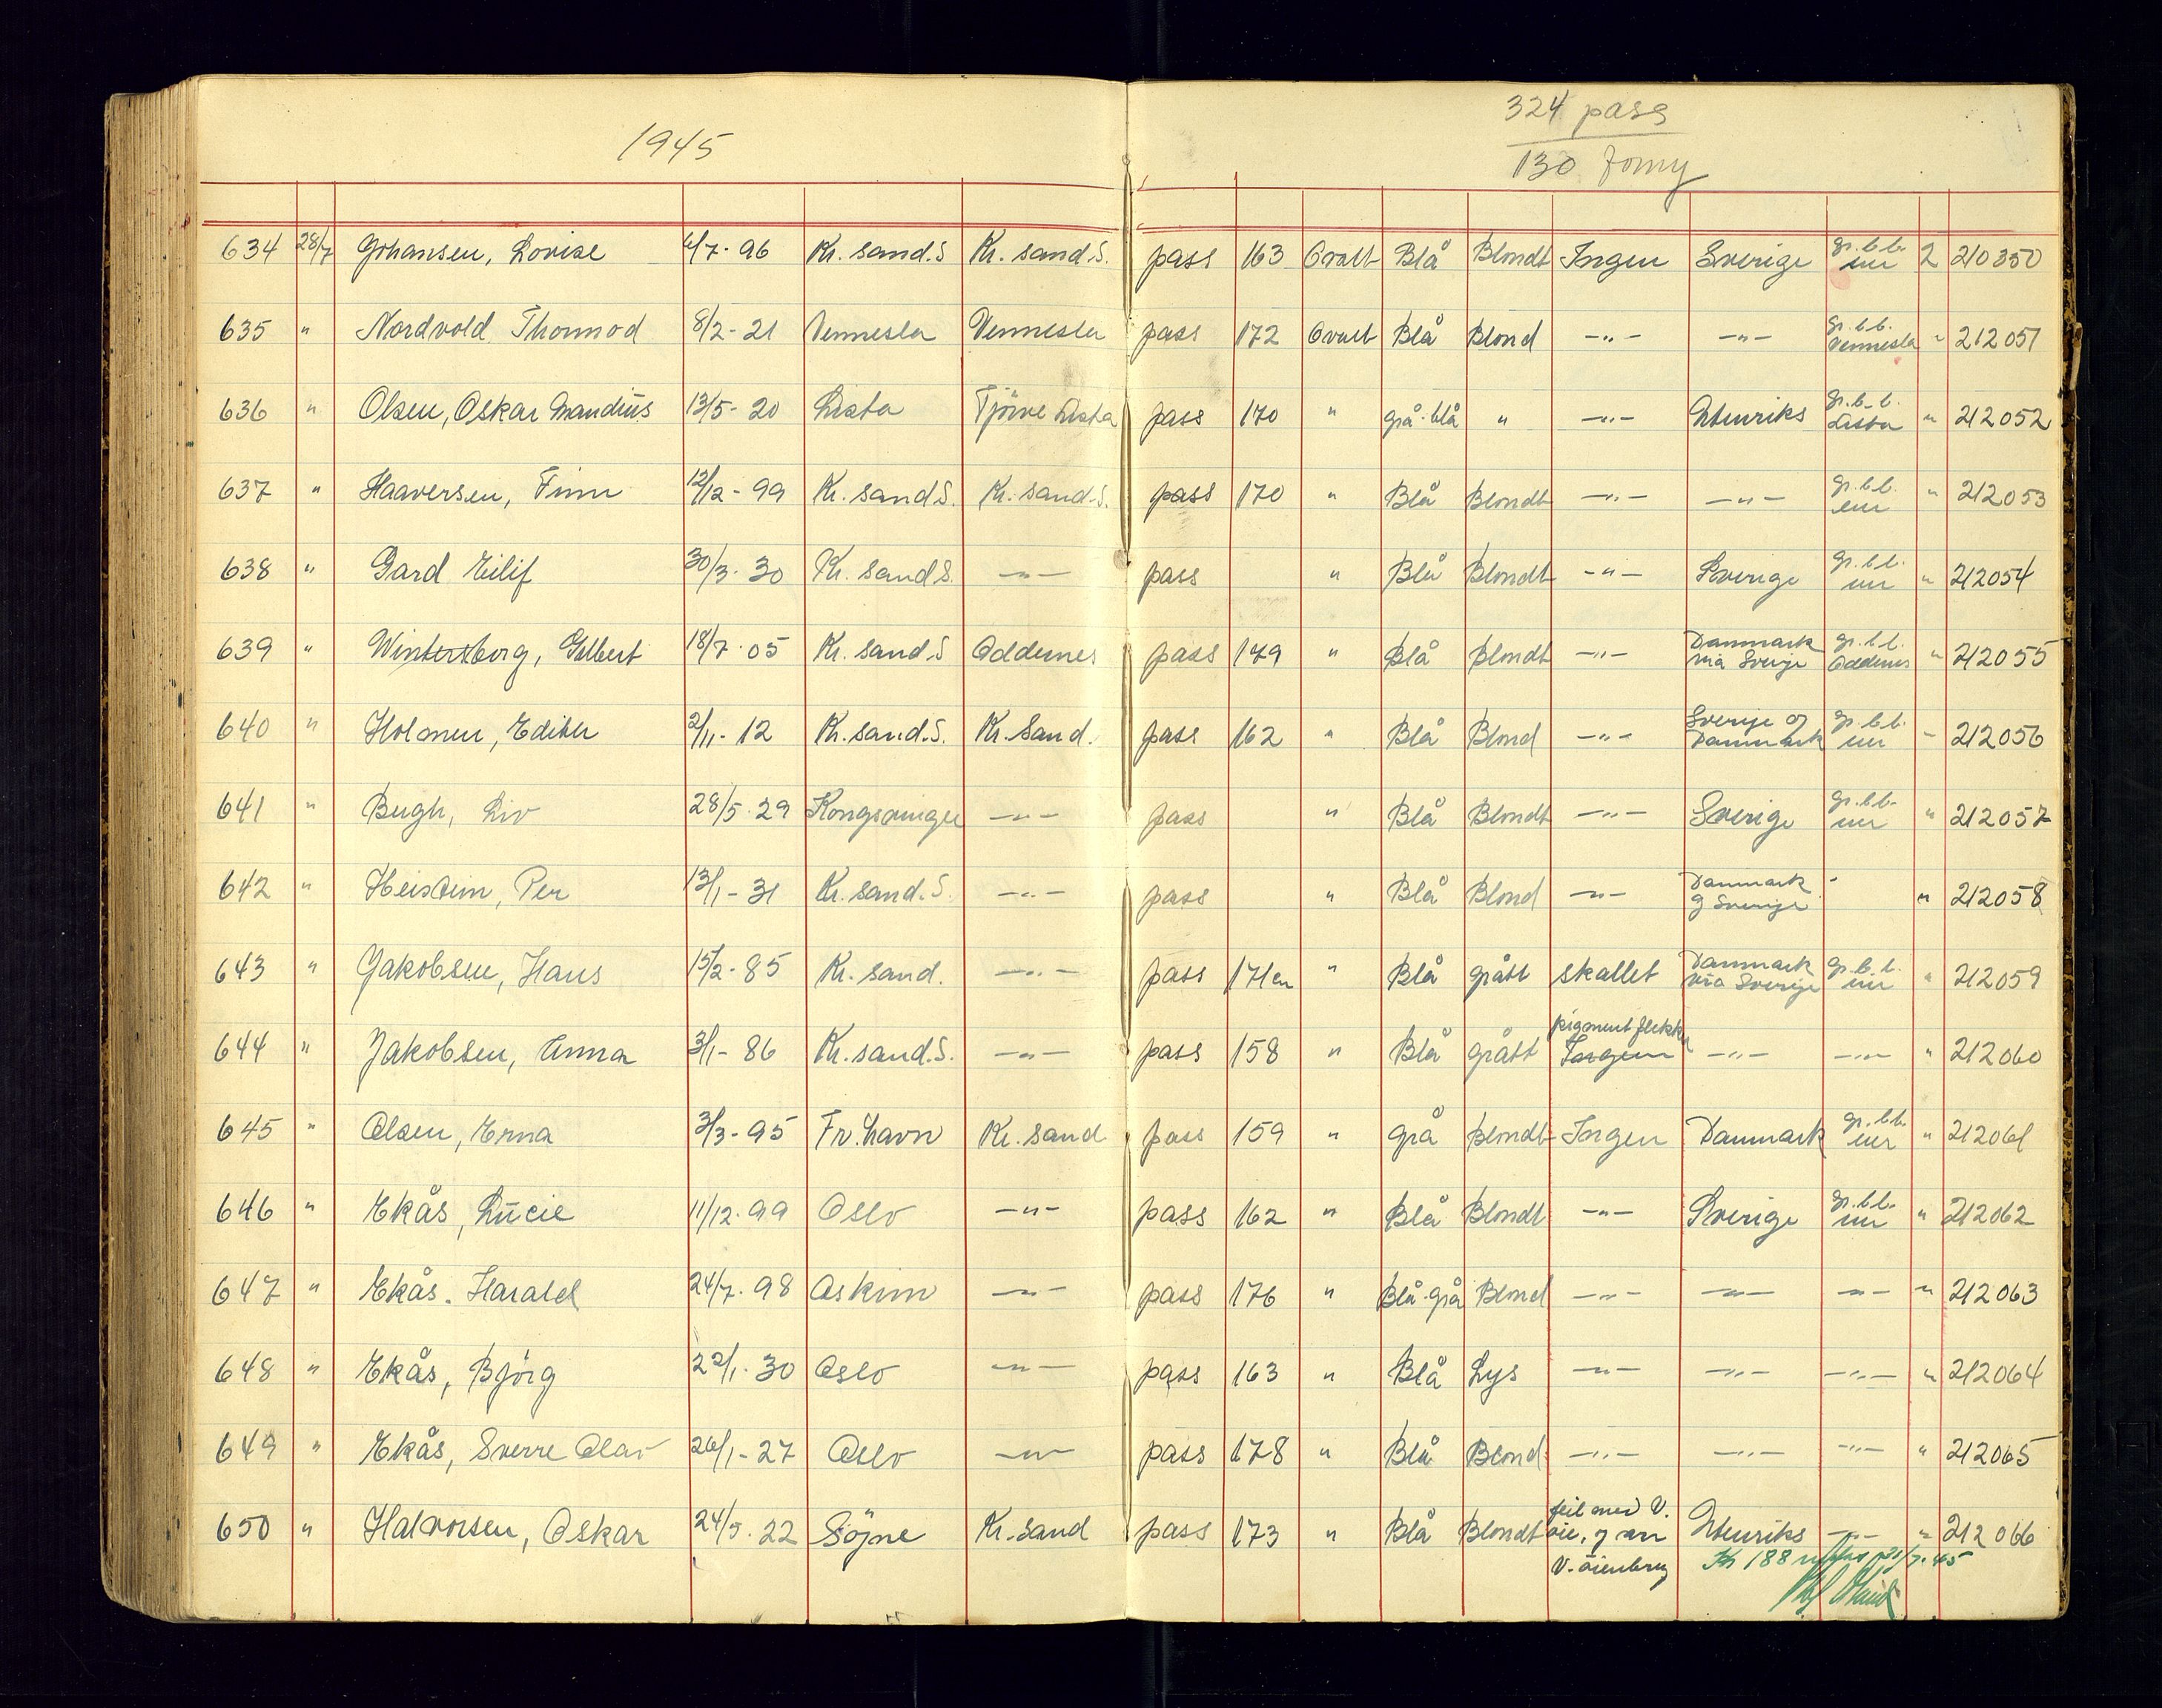 1945
324 pass
130 Forny
634 28/7 Johansen, Lovise 6/7-96 Kr.sand.S Kr.sand.S. pass 163 Ovalt Blå Blondt Ingen Sverige gr.b.b. 2 210350
635 " Nordvold Thormod 8/2-21 Vennesla Vennesla pass 172 Ovalt Blå Blond -"- -"- gr.b.b. Vennesla " 212051
636 " Olsen, Oskar Mandius 13/5-20 Lista Tjörve Lista pass 170 " grå-blå " -"- Utenriks gr.b.b. Lista " 212052
637 " Haaversen, Finn 12/12-99 Kr.sand S. Kr.sand.S. pass 170 " Blå Blondt -"- -"- gr.b.b. eur " 212053
638 " Gard Eilif 30/3-30 Kr.sand S. -"- pass " Blå Blondt -"- Sverige gr.b.b. eur " 212054
639 " Wintersborg, Gilbert 18/7-05 Kr.sand S Oddernes pass 179 " Blå Blondt -"- Danmark via Sverige gr.b.b. Oddernes " 212055
640 " Holmen, Edith 2/11-12 Kr.sand.S. Kr.Sand. pass 162 " Blå Blond -"- Sverige og Danmark gr.b.b. eur " 212056
641 " Bugh, Liv 28/5-29 Kongsvinger -"- pass " Blå Blondt -"- Sverige gr.b.b. eur " 212057
642 " Heisteim, Per 13/1-31 Kr.sand.S. -"- pass " Blå Blond -"- Danmark og Sverige " " 212058
643 " Jakobsen, Hans 15/2-85 Kr.sand. -"- pass 171cm " Blå grått skallet Danmark via Sverige gr.b.b. eur " 212059
644 " Jakobsen, Anna 3/1-86 Kr.sand.S. -"- pass 158 " Blå grått pigment flekker Ingen -"- -"- " 212060
645 " Olsen, Erna 3/3-95 Fr.havn Kr.sand pass 159 " grå blondt Ingen Danmark gr.b.b. eur " 212061
646 " Ekås, Lucie 11/12-99 Oslo -"- pass 162 " Blå Blondt -"- Sverige gr.b.b. eur " 212062
647 " Ekås. Harald 24/7-98 Askim -"- pass 176 " Blå-grå Blond -"- -"- -"- " 212063
648 " Ekås, Björg 22/1-30 Oslo -"- pass 163 " Blå Lys -"- -"- -"- " 212064
649 " Ekås, Sverre Olav 26/1-27 Oslo -"- pass 178 " Blå Blond -"- -"- -"- " 212065
650 " Halvorsen, Oskar 24/5-22 Söjne Kr.sand pass 173 " Blå Blondt feil med V. öie, og arr V. öienbryn Utenriks -"- " 212066
Kr 188 31/7.45